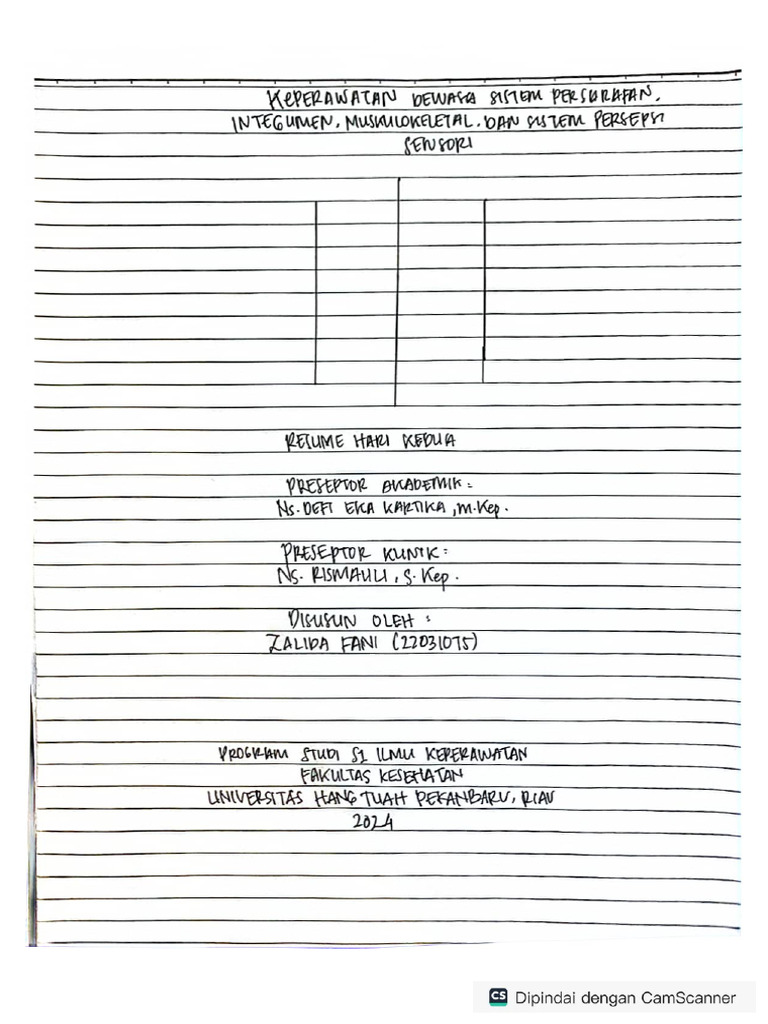 KEPERAWATAN DEWASA SISTEM PERSARAFAN,
INTEGUMEN, MUSKULOKELETAL, DAN SISTEM PERSEPSI
SENSORI
RESUME HARI KEDUA
PRESEPTOR AKADEMIK :
Ns. DEFI EKA KARTIKA, M.Kep.
PRESEPTOR KLINIK :
Ns. RISMAULI, S.Kep.
DISUSUN OLEH :
ZALIDA FANI (22031075)
PROGRAM STUDI S1 ILMU KEPERAWATAN
FAKULTAS KESEHATAN
UNIVERSITAS HANG TUAH PEKANBARU, RIAU
2024
CS Dipindai dengan CamScanner